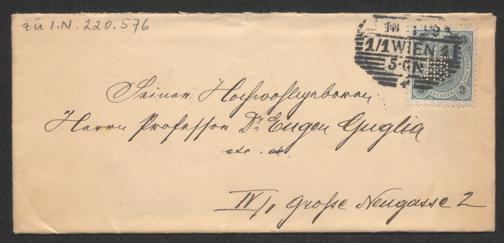 zu I.N. 220.576
1/1 WIEN 1
5-6N
Seiner Hochwohlgeboren
Herrn Professor Dr Eugen Guglia
etc. etc.
IV/1 Große Neugasse 2